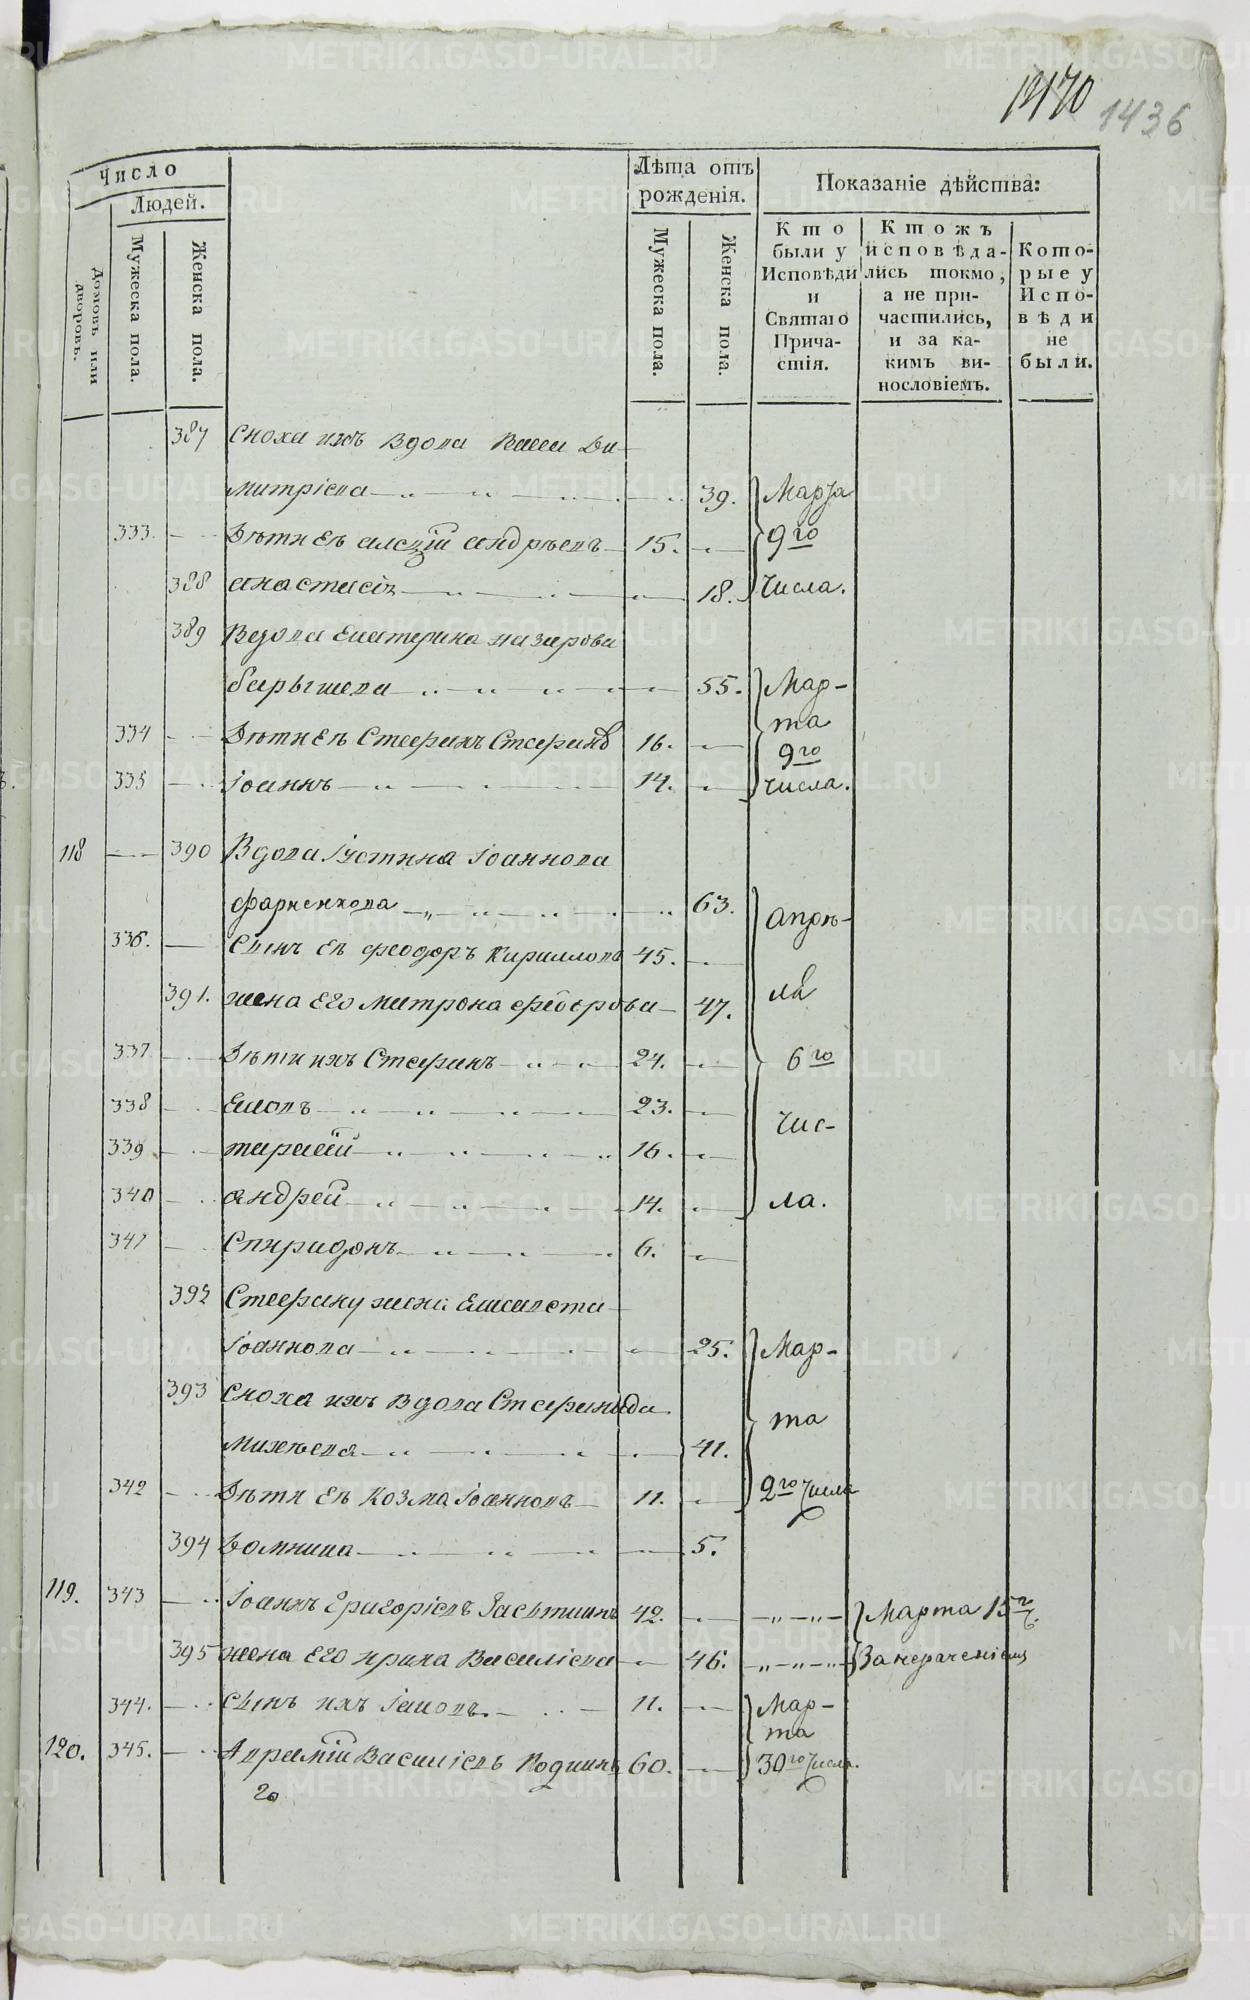 1436
Число
Людей.
Домовъ или дворовъ.
Мужеска пола.
Женска пола.
Лѣта отъ рожденія.
Мужеска пола.
Женска пола.
Показаніе дѣйства:
Кто были у Исповѣди и Святаго Причастія.
Ктожъ исповѣдались токмо, а не причастились, и за какимъ винословіемъ.
Которые у Исповѣди не были.
387 Сноха ихъ вдова Васса Ди-
митріева 39. Марта
333. Дѣти Еѣ Андрѣевъ 15. 9го
388 Анастасія 18. Числа.
389 Вдова Екатерина Назарова
Барышева 55. Мар-
та
334 Дѣти Еѣ Стефанъ Стефановъ 16. 9го
335 Іоаннъ 14. Числа.
118 390 Вдова Іустина Іоаннова
63. Апрѣ-
336. Сынъ Еѣ Феодоръ Кирилловъ 45.
391. жена Его Матрона Феодорова 47. ля
337 Дѣти ихъ Стефанъ 24. 6го
338 Іаковъ 23. Чис-
339 Тарасій 16.
340 Андрей 14. ла.
341 Спиридонъ 6.
392 Стефану жена Елисавета
Іоаннова 25. Мар-
393 Сноха ихъ вдова Стефанида та
Михѣева 41.
342 Дѣти Еѣ Козма Іоанновъ 11. 2го Числа
394 Домника 5.
119. 343 Іоаннъ Григоріевъ 42. Марта 15го
395 жена Его Ирина Василіева 46. За нераченіемъ
344. Сынъ ихъ Іаковъ 11. Мар-
та
120. 345. Василіевъ 60. 30го Числа.
METRIKI.GASO-URAL.RU